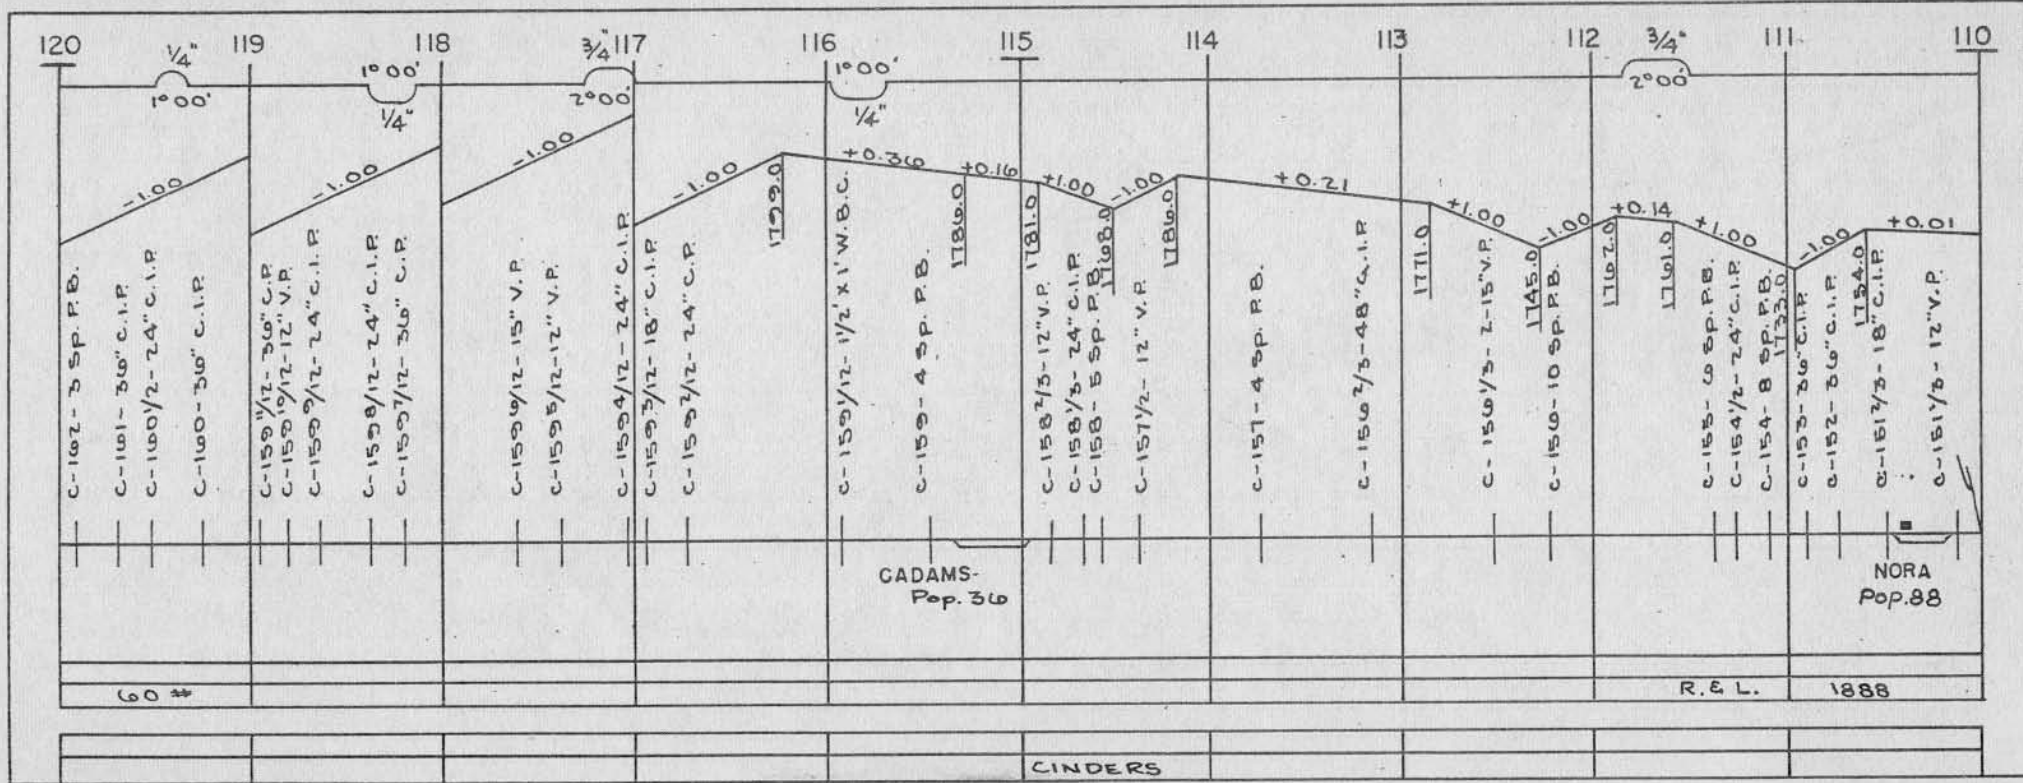 120 119 118 117 116 115 114 113 112 111 110
1/4" 1°00'
1°00' 1/4"
3/4" 2°00'
1°00' 1/4"
3/4" 2°00'
-1.00
-1.00
-1.00
-1.00
+0.36
+0.16
+1.00
-1.00
+0.21
+1.00
-1.00
+0.14
+1.00
-1.00
+0.01
1799.0
1786.0
1781.0
1768.0
1786.0
1771.0
1745.0
1762.0
1761.0
1733.0
1754.0
C-162-3 Sp. P.B.
C-161-36" C.I.P.
C-160 1/2-24" C.I.P.
C-160-36" C.I.P.
C-159 11/12-36" C.P.
C-159 10/12-12" V.P.
C-159 9/12-24" C.I.P.
C-159 8/12-24" C.I.P.
C-159 7/12-36" C.P.
C-159 6/12-15" V.P.
C-159 5/12-12" V.P.
C-159 4/12-24" C.I.P.
C-159 3/12-18" C.I.P.
C-159 2/12-24" C.P.
C-159 1/12-1 1/2' x 1' W.B.C.
C-159-4 Sp. P.B.
C-158 2/3-12" V.P.
C-158 1/3-24" C.I.P.
C-158-5 Sp. P.B.
C-157 1/2-12" V.P.
C-157-4 Sp. P.B.
C-156 2/3-48" C.I.P.
C-156 1/3-2-15" V.P.
C-156-10 Sp. P.B.
C-155-6 Sp. P.B.
C-154 1/2-24" C.I.P.
C-154-8 Sp. P.B.
C-153-36" C.I.P.
C-152-36" C.I.P.
C-151 2/3-18" C.I.P.
C-151 1/3-12" V.P.
CADAMS-
Pop. 36
NORA
Pop. 88
60 #
R. & L. 1888
CINDERS